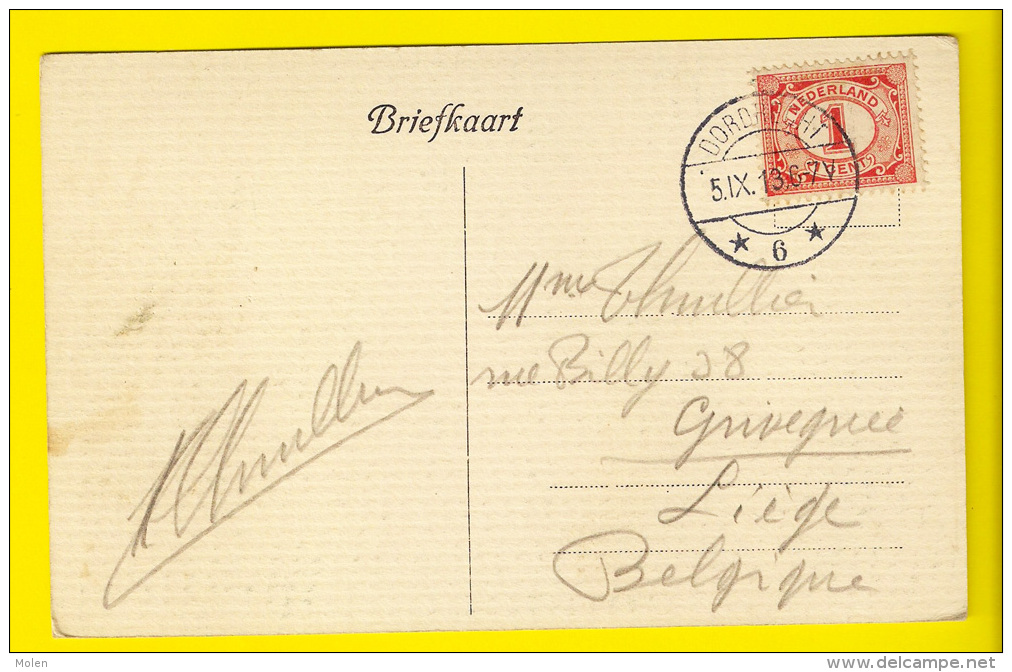 Briefkaart
NEDERLAND
1
CENT
DORDRECHT
5.IX.13.6-7V
6
Mme Thuillier
rue Billy 28
Grivegnée
Liège
Belgique
Thuillier
Molen
http://www.delcampe.net